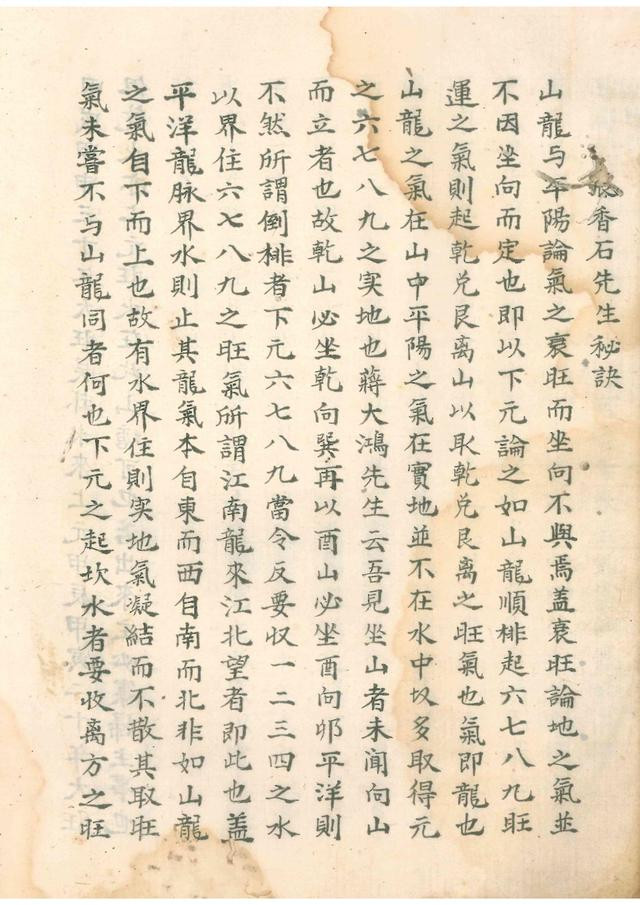 香石先生秘訣
山龍与平陽論氣之衰旺而坐向不與焉盖衰旺論地之氣並
不因坐向而定也即以下元論之如山龍順排起六七八九旺
運之氣則起乾兑艮离山以取乾兑艮离之旺氣也氣即龍也
山龍之氣在山中平陽之氣在實地並不在水中以多取得元
之六七八九之实地也蔣大鴻先生云吾見坐山者未闻向山
而立者也故乾山必坐乾向巽再以酉山必坐酉向卯平洋則
不然所謂倒排者下元六七八九當令反要収一二三四之水
以界住六七八九之旺氣所謂江南龍來江北望者即此也盖
平洋龍脉界水則止其龍氣本自東而西自南而北非如山龍
之氣自下而上也故有水界住則实地氣凝結而不散其取旺
氣未嘗不与山龍同者何也下元之起坎水者要收离方之旺